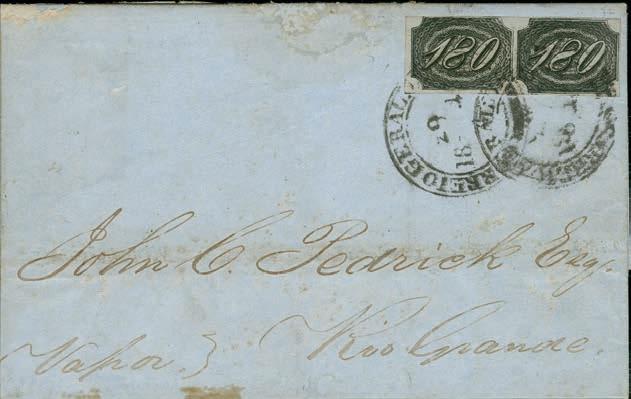 180 180
REIO GERAL
29
18
John C. Pedrick Esq.
Vapor Rio Grande.